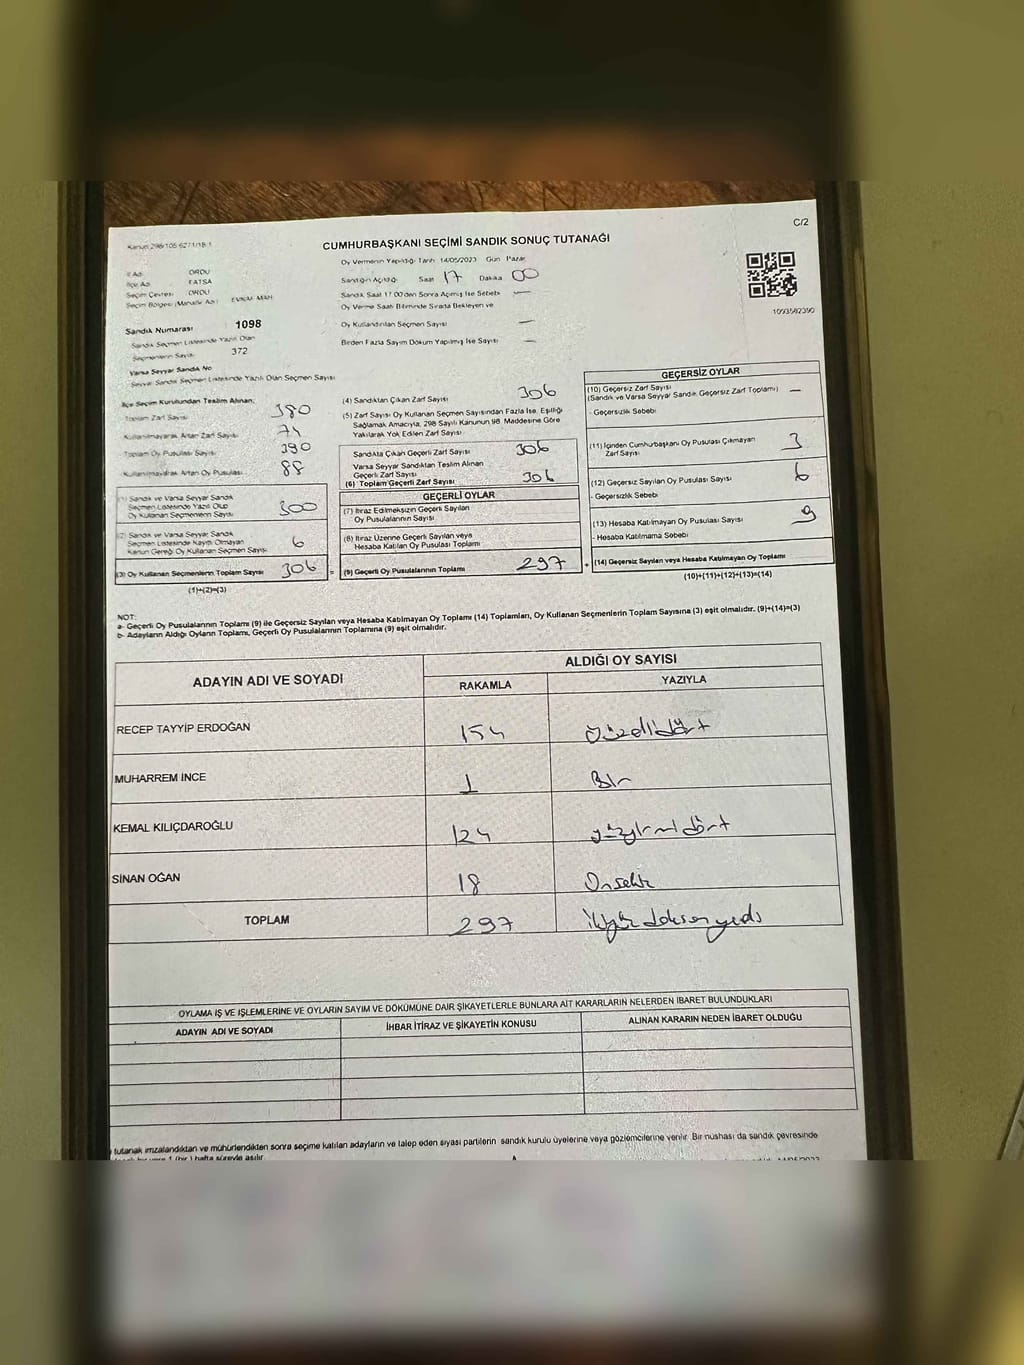 C/2
Kanun 298/105 6271/18 1
CUMHURBAŞKANI SEÇİMİ SANDIK SONUÇ TUTANAĞI
İl Adı ORDU
İlçe Adı FATSA
Seçim Çevresi ORDU
Seçim Bölgesi (Mahalle Adı)
Sandık Numarası 1098
Sandık Seçmen Listesinde Yazılı Olan
Seçmenlerin Sayısı 372
Varsa Seyyar Sandık No
Seyyar Sandık Seçmen Listesinde Yazılı Olan Seçmen Sayısı
Oy Vermenin Yapıldığı Tarih 14/05/2023 Gün Pazar
Sandığın Açıldığı Saat 17 Dakika 00
Sandık Saat 17 00'den Sonra Açılmış İse Sebebi —
Oy Verme Saati Bitiminde Sırada Bekleyen ve
Oy Kullandırılan Seçmen Sayısı —
Birden Fazla Sayım Döküm Yapılmış İse Sayısı —
1093582390
İlçe Seçim Kurulundan Teslim Alınan,
Toplam Zarf Sayısı 380
Kullanılmayarak Artan Zarf Sayısı 74
Toplam Oy Pusulası Sayısı 390
Kullanılmayarak Artan Oy Pusulası 88
(1) Sandık ve Varsa Seyyar Sandık
Seçmen Listesinde Yazılı Olup
Oy Kullanan Seçmenlerin Sayısı 300
(2) Sandık ve Varsa Seyyar Sandık
Seçmen Listesinde Kayıtlı Olmayan
Kanun Gereği Oy Kullanan Seçmen Sayısı 6
(3) Oy Kullanan Seçmenlerin Toplam Sayısı 306 =
(1)+(2)=(3)
(4) Sandıktan Çıkan Zarf Sayısı 306
(5) Zarf Sayısı Oy Kullanan Seçmen Sayısından Fazla İse, Eşitliği
Sağlamak Amacıyla, 298 Sayılı Kanunun 98. Maddesine Göre
Yakılarak Yok Edilen Zarf Sayısı
Sandıkta Çıkan Geçerli Zarf Sayısı 306
Varsa Seyyar Sandıktan Teslim Alınan
Geçerli Zarf Sayısı
(6) Toplam Geçerli Zarf Sayısı 306
GEÇERLİ OYLAR
(7) İtiraz Edilmeksizin Geçerli Sayılan
Oy Pusulalarının Sayısı
(8) İtiraz Üzerine Geçerli Sayılan veya
Hesaba Katılan Oy Pusulası Toplamı
(9) Geçerli Oy Pusulalarının Toplamı 297 +
GEÇERSİZ OYLAR
(10) Geçersiz Zarf Sayısı
(Sandık ve Varsa Seyyar Sandık Geçersiz Zarf Toplamı) —
- Geçersizlik Sebebi
(11) İçinden Cumhurbaşkanı Oy Pusulası Çıkmayan
Zarf Sayısı 3
(12) Geçersiz Sayılan Oy Pusulası Sayısı 6
- Geçersizlik Sebebi
(13) Hesaba Katılmayan Oy Pusulası Sayısı 9
- Hesaba Katılmama Sebebi
(14) Geçersiz Sayılan veya Hesaba Katılmayan Oy Toplamı
(10)+(11)+(12)+(13)=(14)
NOT:
a- Geçerli Oy Pusulalarının Toplamı (9) ile Geçersiz Sayılan veya Hesaba Katılmayan Oy Toplamı (14) Toplamları, Oy Kullanan Seçmenlerin Toplam Sayısına (3) eşit olmalıdır. (9)+(14)=(3)
b- Adayların Aldığı Oyların Toplamı, Geçerli Oy Pusulalarının Toplamına (9) eşit olmalıdır.
ADAYIN ADI VE SOYADI
ALDIĞI OY SAYISI
RAKAMLA YAZIYLA
RECEP TAYYİP ERDOĞAN 154 Yüzellidört
MUHARREM İNCE 1 Bir
KEMAL KILIÇDAROĞLU 124 yüzyirmidört
SİNAN OĞAN 18 Onsekiz
TOPLAM 297 ikiyüz doksan yedi
OYLAMA İŞ VE İŞLEMLERİNE VE OYLARIN SAYIM VE DÖKÜMÜNE DAİR ŞİKAYETLERLE BUNLARA AİT KARARLARIN NELERDEN İBARET BULUNDUKLARI
ADAYIN ADI VE SOYADI İHBAR İTİRAZ VE ŞİKAYETİN KONUSU ALINAN KARARIN NEDEN İBARET OLDUĞU
tutanak imzalandıktan ve mühürlendikten sonra seçime katılan adayların ve talep eden siyasi partilerin sandık kurulu üyelerine veya gözlemcilerine verilir. Bir nüshası da sandık çevresinde
1 (bir) hafta süreyle asılır.